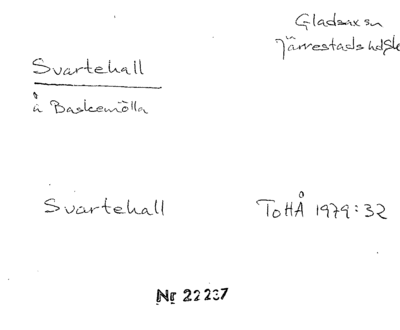 Gladsax sn
Järrestads hd Sk
Svartehall
å Baskemölla
Svartehall
ToHÅ 1979:32
Nr 22237